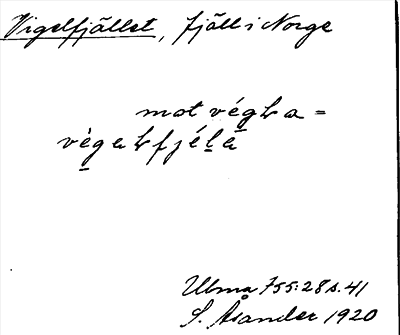 Vigelfjället, fjäll i Norge
mot végⱡa =
vègaⱡfjélä
Ulma 755:28 s. 41
S. Åsander 1920